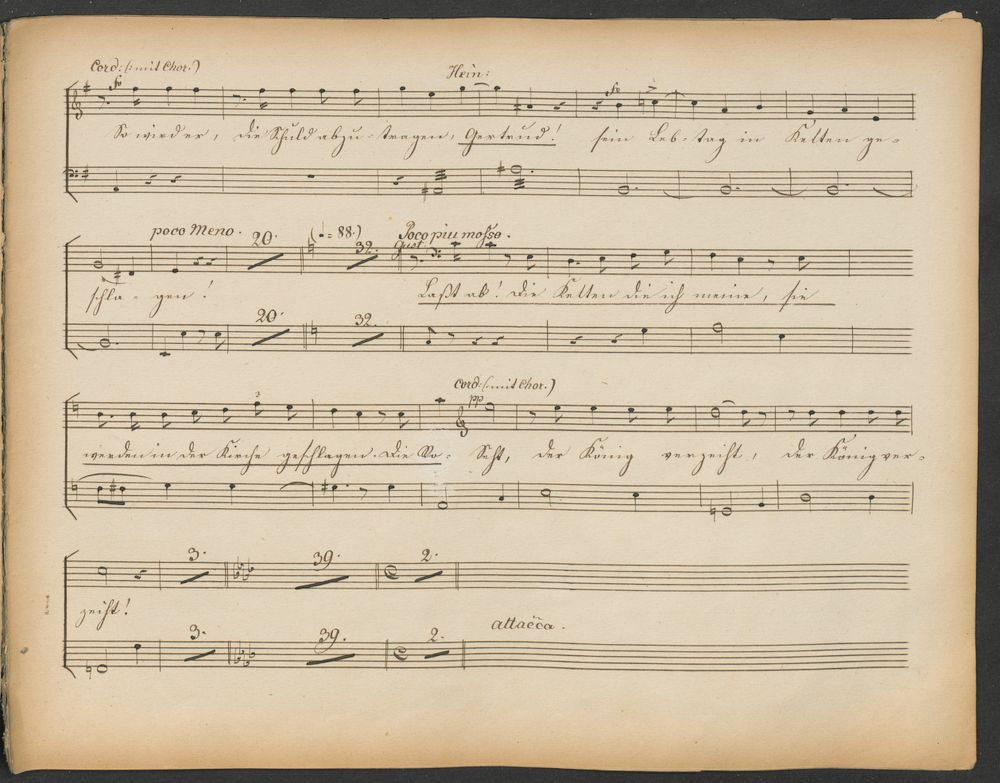 Cord: (: mit Chor.)
Hein:
So wird er, die Schuld abzu-tragen, Gertrud! sein Leb-tag in Ketten ge-
poco Meno. 20. (♩. = 88.) 32. Poco piu mosso.
Gust.
schla - gen! Laßt ab! Die Ketten die ich meine, sie
20. 32.
Cord: (: mit Chor.)
3 pp
werden in der Kirche geschlagen. Die Ro- Seht, der König verzeiht, der König ver-
3. 39. 2.
zeiht!
attacca.
3. 39. 2.